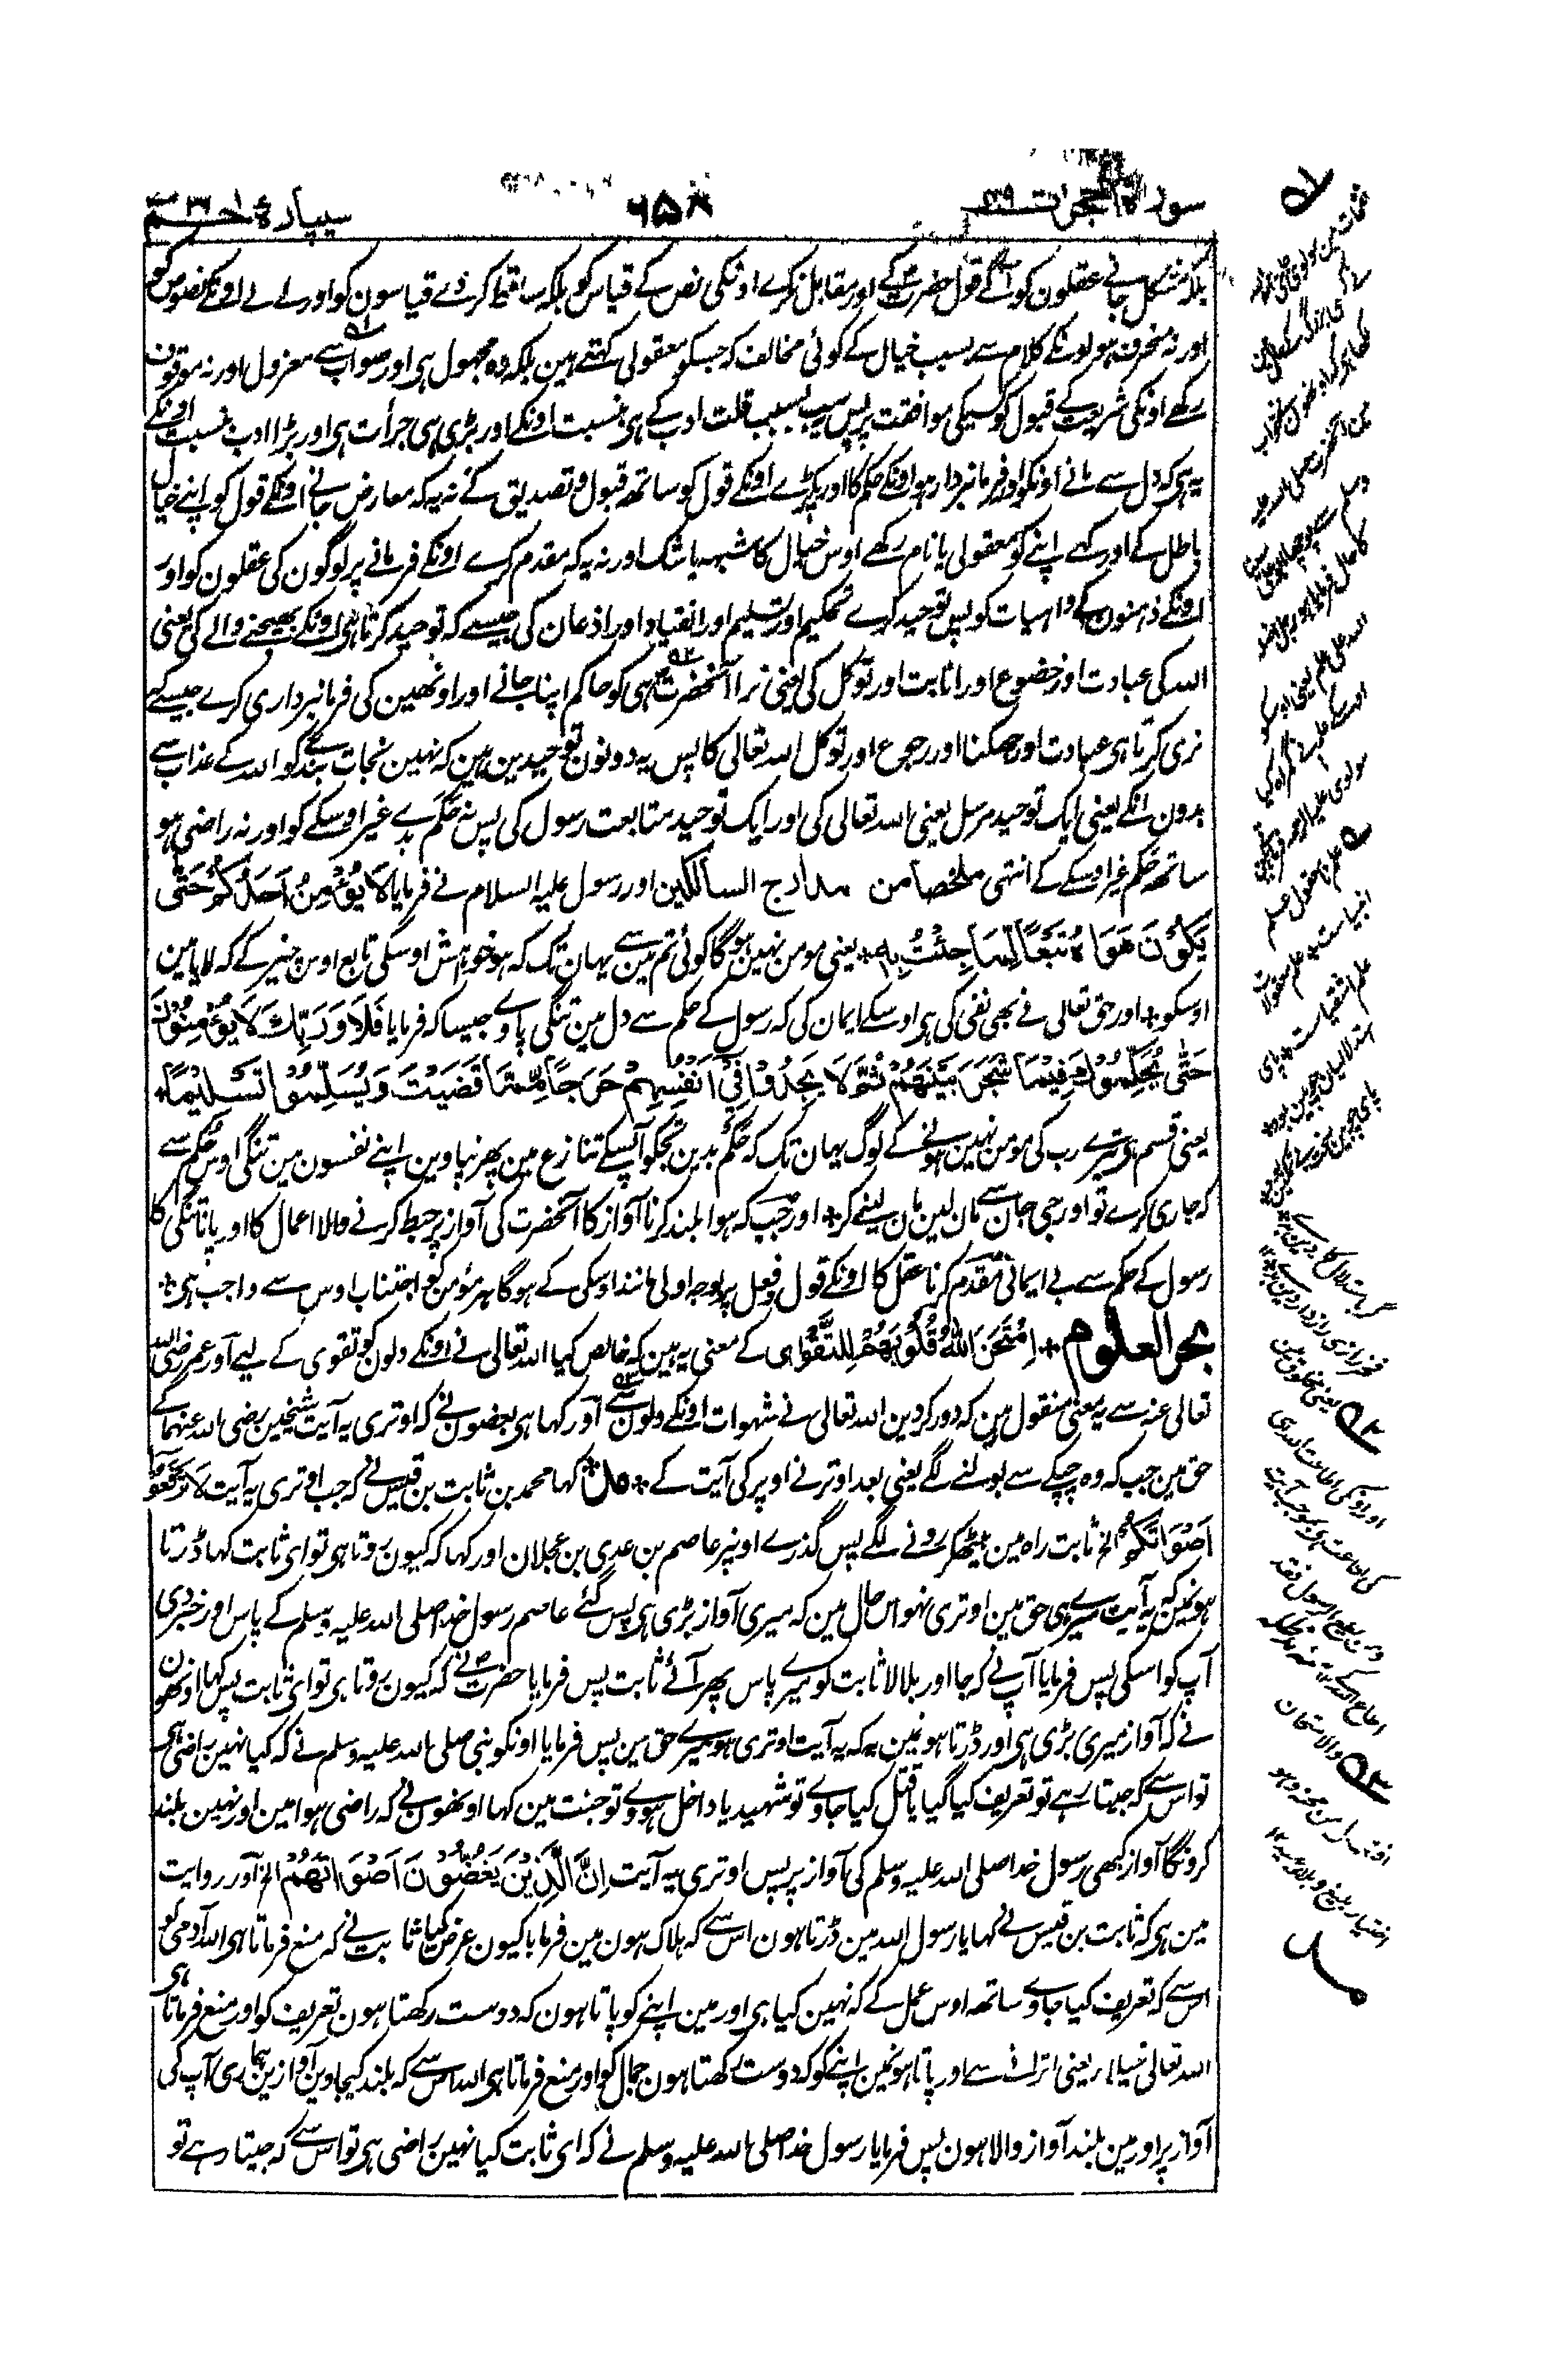 سورۃ الحجرات ۴۹
۶۵۸
سیپارۂ حٰم ۲۶
بلکہ مشکل جانے عقلون کو آگے قول حضرت کے اور مقابل نکرے اونکی نص کے قیاس کو بلکہ ساقط کر دے قیاسون کو اور لے لے اونکے نصوص کو
اور نہ منحرف ہو اونکے کلام سے بسبب خیال کے کوئی مخالف کہ جسکو معقولی کہتے ہین بلکہ وہ مجہول ہی اور صواب سے معزول اور نہ موقوف
رکھے اونکی شریعت کے قبول کو کسیکی موافقت پر پس یہ سب بسبب قلت ادب کے ہی بنسبت اونکے اور بڑی ہی جرأت ہی اور بڑا ادب بنسبت اونکے
یہ ہی کہ دل سے مانے اونکو اور فرمانبردار ہو اونکے حکم کا اور پکڑے اونکے قول کو ساتھ قبول و تصدیق کے نہ یہ کہ معارض جانے اونکے قول کو اپنے خیال
باطل کے اور کہے اپنے کو معقولی یا نام رکھے اوس خیال کا شبہہ یا شک اور نہ یہ کہ مقدم کرے اونکے فرمانے پر لوگون کی عقلون کو اور
اونکے ذہنون کے واہیات کو پس توحید کرے تحکیم اور تسلیم اور انقیاد اور اذعان کی جیسے کہ توحید کرتا ہی اونکے بھیجنے والے کی یعنی
اللہ کی عبادت اور خضوع اور انابت اور توکل کی یعنی نرا آنحضرت ہی کو حاکم اپنا جانے اور اونھین کی فرمانبرداری کرے جیسے کہ
نری کرتا ہی عبادت اور جھکنا اور رجوع اور توکل اللہ تعالی کا پس یہ دونون توحیدین ہین کہ نہین نجات بندے کو اللہ کے عذاب سے
بدون انکے یعنی ایک توحید مرسل یعنی اللہ تعالی کی اور ایک توحید متابعت رسول کی پس نہ حکم بدے غیر اوسکے کو اور نہ راضی ہو
ساتھ حکم غیر اوسکے کے انتہی ملخصا من مدارج السالکین اور رسول علیہ السلام نے فرمایا لَا يُؤْمِنُ اَحَدُكُمْ حَتّٰی
يَكُوْنَ هَوَاهُ تَبَعًا لِّمَا جِئْتُ بِهٖ + یعنی مومن نہین ہوگا کوئی تم مین سے یہان تک کہ ہو خواہش اوسکی تابع اوس چیز کے کہ لایا مین
اوسکو + اور حق تعالی نے بھی نفی کی ہی اوسکے ایمان کی کہ رسول کے حکم سے دل مین تنگی پاوے جیسا کہ فرمایا فَلَا وَرَبِّكَ لَا يُؤْمِنُوْنَ
حَتّٰی يُحَكِّمُوْكَ فِيْمَا شَجَرَ بَيْنَهُمْ ثُمَّ لَا يَجِدُوْا فِيْ اَنْفُسِهِمْ حَرَجًا مِّمَّا قَضَيْتَ وَيُسَلِّمُوْا تَسْلِيْمًا +
یعنی قسم ہی تیرے رب کی مومن نہین ہونے کے لوگ یہان تک کہ حَکَم بدین تجکو آپسکے تنازع مین پھر نپاوین اپنے نفسون مین تنگی اوس حکم سے
کہ جاری کرے تو اور جی جان سے مان لین مان لینے کر + اور جب کہ ہوا بلند کرنا آواز کا آنحضرت کی آواز پر حبط کرنے والا اعمال کا اور پانا تنگی کا
رسول کے حکم سے بے ایمانی مقدم کرنا عقل کا اونکے قول و فعل پر بوجہ اولی مانند اوسکی کے ہوگا ہر مؤمن کو اجتناب اوس سے واجب ہی +
بحر العلوم + اِمْتَحَنَ اللّٰهُ قُلُوْبَهُمْ لِلتَّقْوٰی کے معنی یہ ہین کہ خالص کیا اللہ تعالی نے اونکے دلون کو تقوی کے لیے اور عمر رضی اللہ
تعالی عنہ سے یہ معنی منقول ہین کہ دور کردین اللہ تعالی نے شہوات اونکے دلون سے اور کہا ہی بعضون نے کہ اوتری یہ آیت شیخین رضی اللہ عنہما کے
حق مین جب کہ وہ چپکے سے بولنے لگے یعنی بعد اوترنے اوپر کی آیت کے + کہا محمد بن ثابت بن قیس نے کہ جب اوتری یہ آیت لَا تَرْفَعُوْا
اَصْوَاتَكُمْ الخ ثابت راہ مین بیٹھکر رونے لگے پس گذرے اونپر عاصم بن عدی بن عجلان اور کہا کہ کیون روتا ہی تو ای ثابت کہا ڈرتا
ہونمین کہ یہ آیت میرے ہی حق مین اوتری نہو اس حال مین کہ میری آواز بڑی ہی پس گئے عاصم رسول خدا صلی اللہ علیہ وسلم کے پاس اور خبر دی
آپ کو اسکی پس فرمایا آپ نے کہ جا اور بلا لا ثابت کو میرے پاس پھر آئے ثابت پس فرمایا حضرت نے کہ کیون روتا ہی تو ای ثابت پس کہا اونھون
نے کہ آواز میری بڑی ہی اور ڈرتا ہونمین کہ یہ آیت اوتری ہو میرے حق مین پس فرمایا اونکو نبی صلی اللہ علیہ وسلم نے کہ کیا نہین راضی ہی
تو اس سے کہ جیتا رہے تو تعریف کیا گیا یا قتل کیا جاوے تو شہید یا داخل ہووے تو جنت مین کہا اونھون نے کہ راضی ہوا مین اور نہین بلند
کرونگا آواز کبھی رسول خدا صلی اللہ علیہ وسلم کی آواز پر پس اوتری یہ آیت اِنَّ الَّذِيْنَ يَغُضُّوْنَ اَصْوَاتَهُمْ الخ اور روایت
مین ہی کہ ثابت بن قیس نے کہا یا رسول اللہ مین ڈرتا ہون اس سے کہ ہلاک ہون مین فرمایا کیون عرض کیا ثابت نے کہ منع فرماتا ہی اللہ آدمی کو
اس سے کہ تعریف کیا جاوے ساتھ اوس عمل کے کہ نہین کیا ہی اور مین اپنے کو پاتا ہون کہ دوست رکھتا ہون تعریف کو اور منع فرماتا ہی
اللہ تعالی خیلاء یعنی اترانے سے اور پاتا ہونمین اپنے کو کہ دوست رکھتا ہون جمال کو اور منع فرماتا ہی اللہ اس سے کہ بلند کیجاوین آوازین ہماری آپ کی
آواز پر اور مین بلند آواز والا ہون پس فرمایا رسول خدا صلی اللہ علیہ وسلم نے کہ ای ثابت کیا نہین راضی ہی تو اس سے کہ جیتا رہے تو